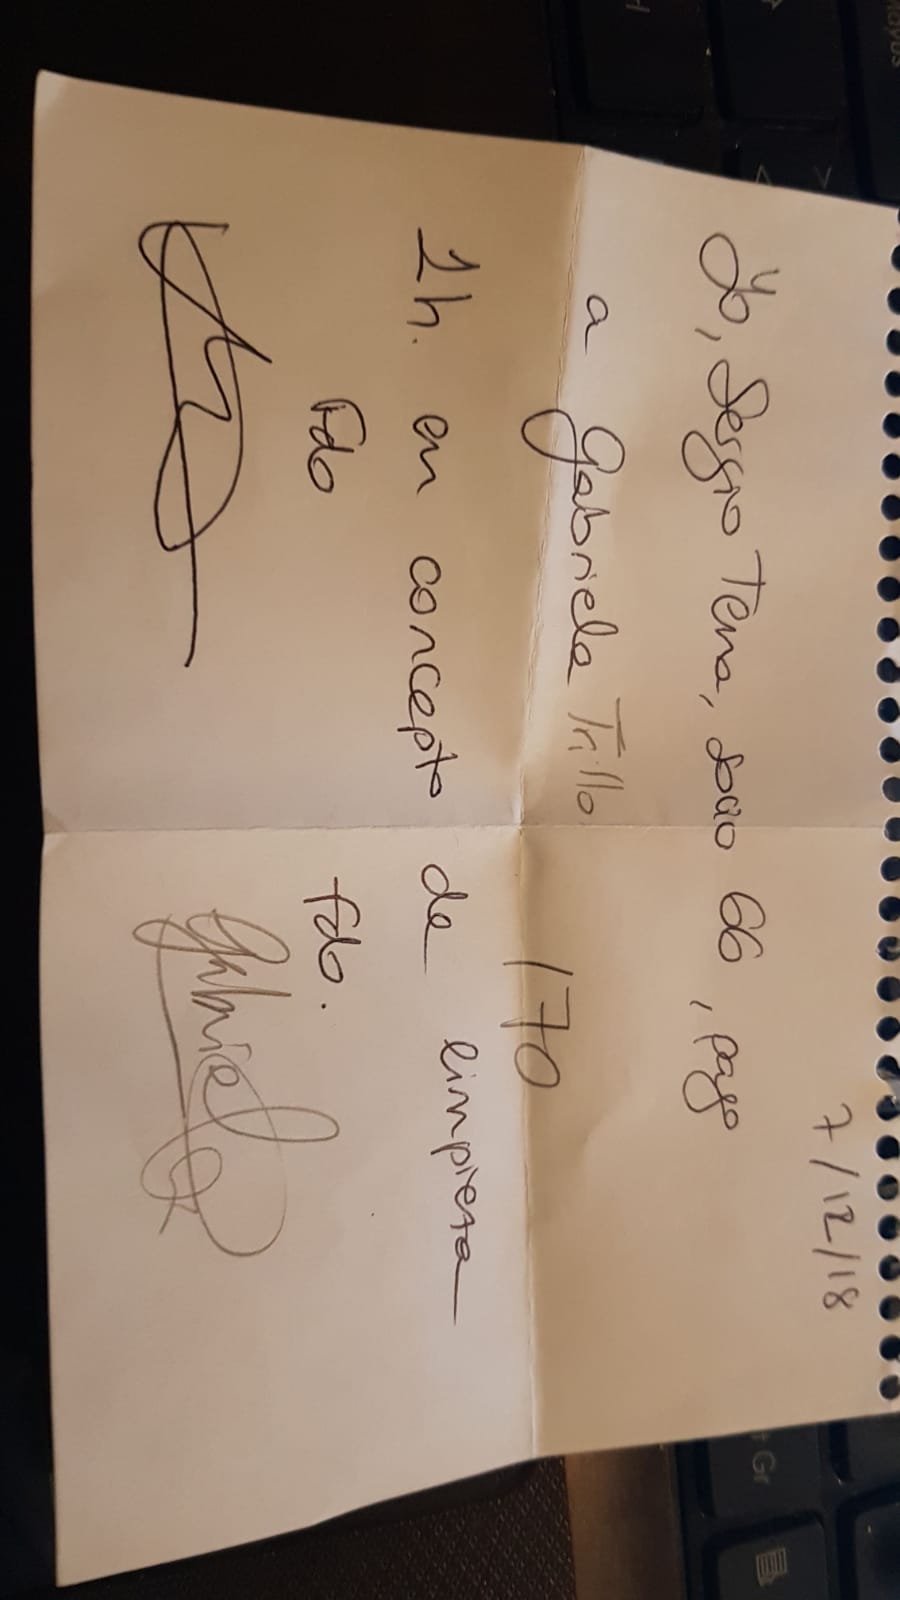 7/12/18
Yo, Sergio Tena, socio 66, pago
a Gabriela Trillo 170
1h. en concepto de limpieza
Fdo fdo.
Gabriela